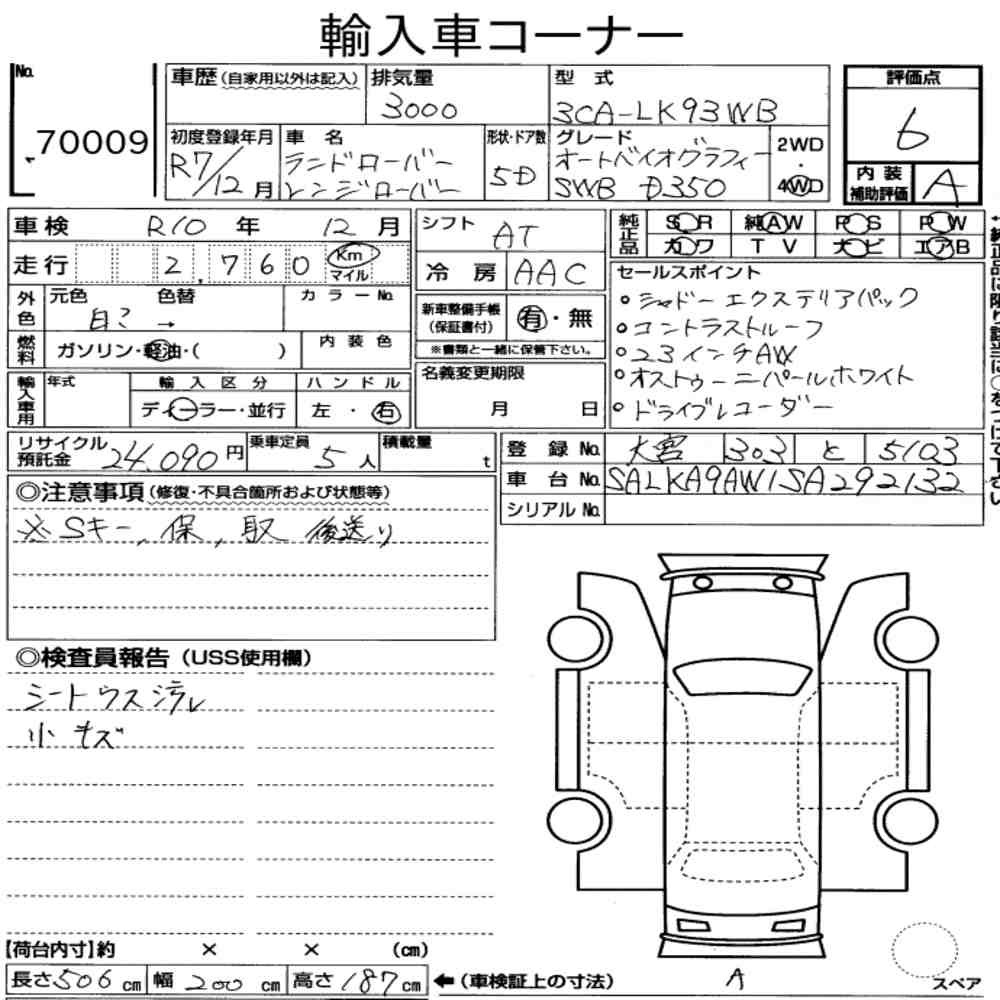 輸入車コーナー
No. 70009
車歴 (自家用以外は記入)
排気量 3000
型式 3CA-LK93WB
評価点 6
内装補助評価 A
初度登録年月 R7/12月
車名 ランドローバー レンジローバー
形状・ドア数 5D
グレード オートバイオグラフィー SWB D350
2WD・4WD
車検 R10年 12月
走行 2,760 Km マイル
シフト AT
冷房 AAC
純正品 SR 純AW PS PW
カワ TV ナビ エアB
外色 元色 色替 カラーNo.
白 →
燃料 ガソリン・軽油・( )
内装色
新車整備手帳 (保証書付) 有・無
※書類と一緒に保管下さい。
名義変更期限
月 日
セールスポイント
・シャドーエクステリアパック
・コントラストルーフ
・23インチAW
・オストゥーニパールホワイト
・ドライブレコーダー
輸入車用 年式
輸入区分 ディーラー・並行
ハンドル 左・右
リサイクル預託金 24,090円
乗車定員 5人
積載量 t
登録No. 大宮 303 と 5103
車台No. SALKA9AW1SA292132
シリアルNo.
◎注意事項 (修復・不具合箇所および状態等)
※Sキー, 保, 取 後送り
◎検査員報告 (USS使用欄)
シートウス汚レ
小キズ
【荷台内寸】約 × × (cm)
長さ506cm 幅200cm 高さ187cm ←(車検証上の寸法)
A
スペア